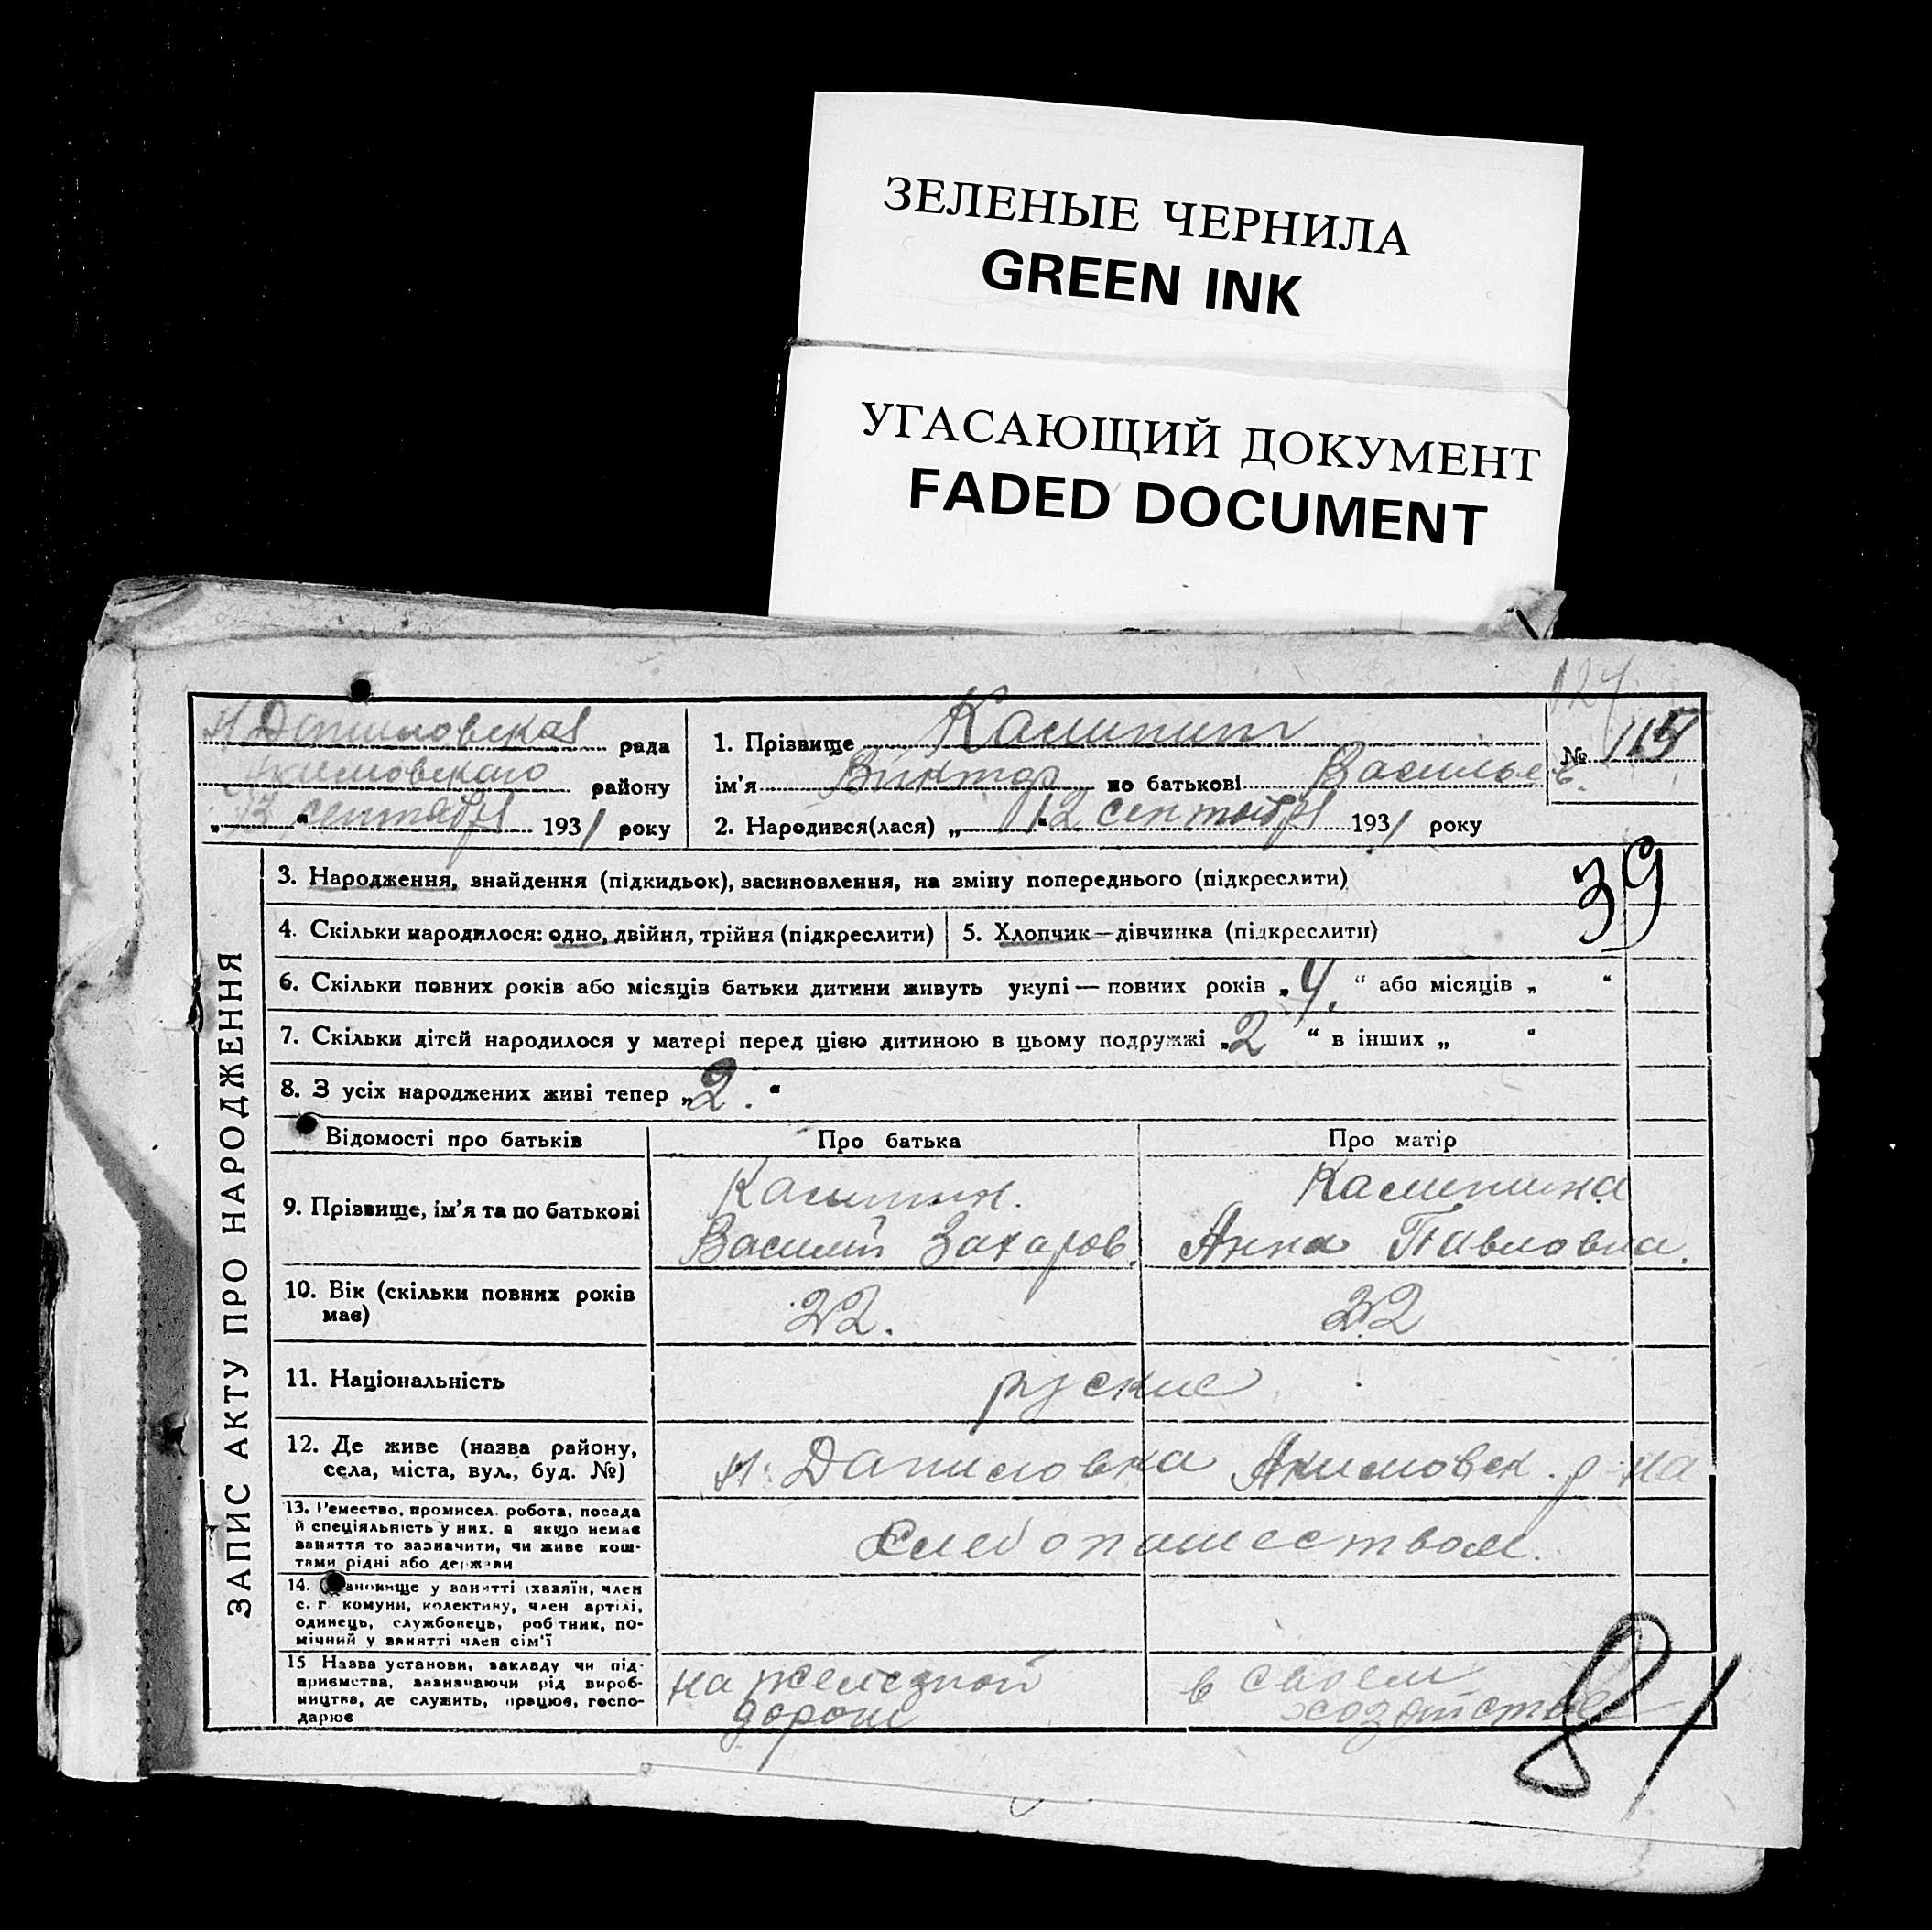 ЗЕЛЕНЫЕ ЧЕРНИЛА
GREEN INK
УГАСАЮЩИЙ ДОКУМЕНТ
FADED DOCUMENT
124
Н Даниловская рада
Акимовскаго району
„13“ сентября 1931 року
1. Прізвище Калинин
№ 115
ім'я Виктор по батькові Васильев.
2. Народився(лася) „12“ сентября 1931 року
39
ЗАПИС АКТУ ПРО НАРОДЖЕННЯ
3. Народження, знайдення (підкидьок), засиновлення, на зміну попереднього (підкреслити)
4. Скільки народилося: одно, двійня, трійня (підкреслити)
5. Хлопчик—дівчинка (підкреслити)
6. Скільки повних років або місяців батьки дитини живуть укупі — повних років „4.“ або місяців „ “
7. Скільки дітей народилося у матері перед цією дитиною в цьому подружжі „2“ в інших „ “
8. З усіх народжених живі тепер „2.“
Відомості про батьків Про батька Про матір
9. Прізвище, ім'я та по батькові
Калинин.
Василий Захаров.
Калинина
Анна Павловна.
10. Вік (скільки повних років
має)
22.
22
11. Національність
руские
12. Де живе (назва району,
села, міста, вул., буд. №)
Н. Даниловка Акимовск. р-на
13. Ремество, промисел, робота, посада
й спеціяльність у них, а якщо немає
заняття то зазначити, чи живе кош-
тами рідні або держави
хлебопашеством.
14. Становище у занятті (хазяїн, член
с. г. комуни, колективу, член артілі,
одинець, службовець, робітник, по-
мічний у занятті член сім'ї
15 Назва установи, закладу чи під-
приємства, зазначаючи рід вироб-
ництва, де служить, працює, госпо-
дарює
на железной
дороге
в своем
хозяйстве
81